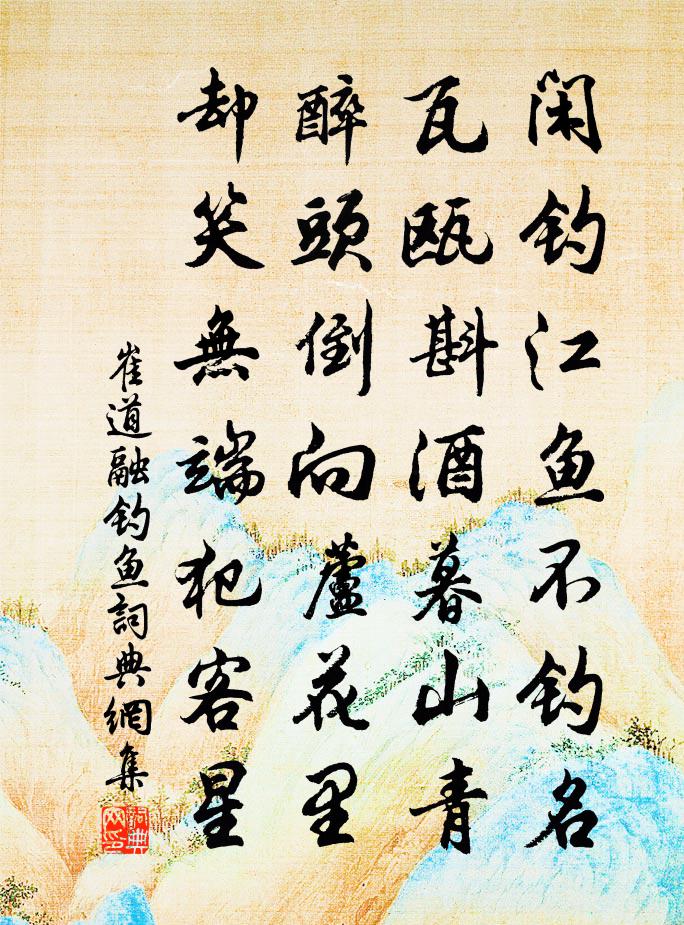 闲钓江鱼不钓名
瓦瓯斟酒暮山青
醉頭倒向蘆花里
却笑無端犯客星
崔道融钓鱼詞典網集
詞典網印